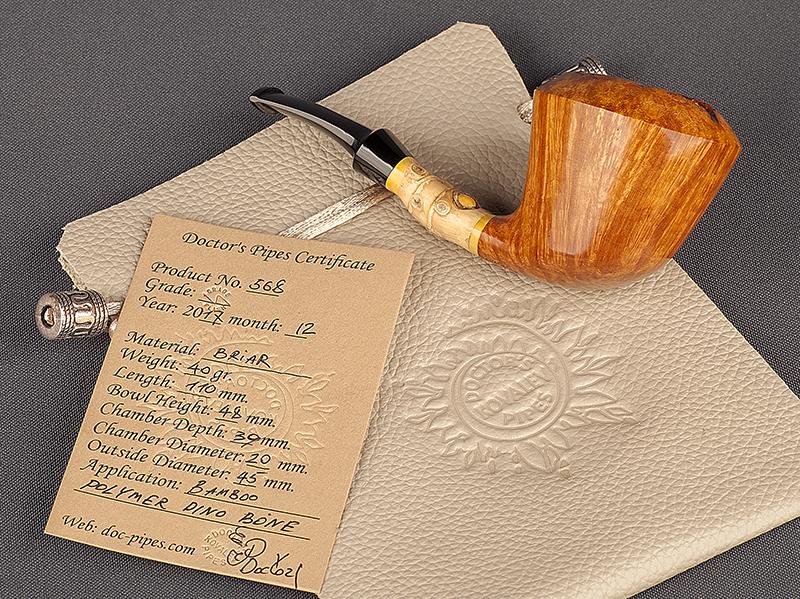 Doctor's Pipes Certificate
Product No. 568
Grade:
Year: 2017 month: 12
Material: BRIAR
Weight: 40 gr.
Length: 110 mm.
Bowl Height: 48 mm.
Chamber Depth: 39 mm.
Chamber Diameter: 20 mm.
Outside Diameter: 45 mm.
Application: BAMBOO
POLYMER DINO BONE
Web: doc-pipes.com
DOCTOR'S
PIPES